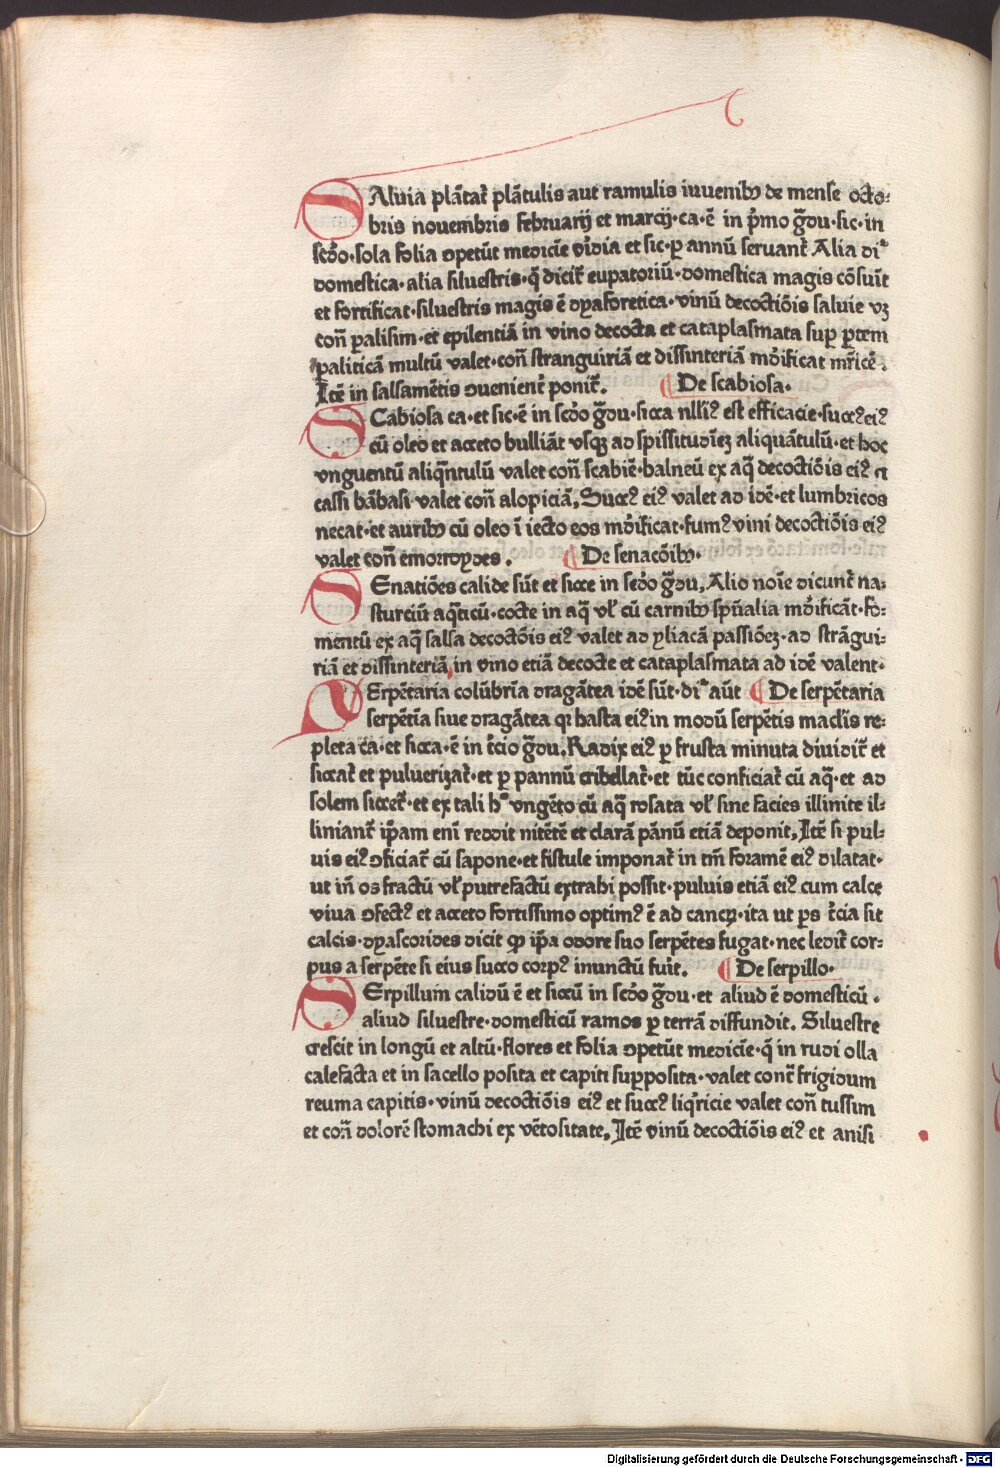 SAlvia plãtat᷑ plãtulis aut ramulis iuvenibꝫ de mense octo-
bris novembris februarij et marcij·ca·ē in p̾mo g̃du·sic·in
scd̾o·sola folia ↄpetũt medicĩe vi̾dia et sic·ꝑ annũ seruant᷑ Alia di
domestica·alia siluestris·q̃ dicit᷑ eupatoriũ·domestica magis cõfuit
et fortificat·siluestris magis ē dyaforetica·vinũ decoctiõis saluie vꝫ
con̄ ꝑalisim·et epilentiã in vino decocta et cataplasmata suꝑ ꝑtem
ꝑaliticã multũ valet·con̄ stranguiriã et dissinteriã mũdificat mr̃icē.
Itē in salsamẽtis ↄuenient᷑ ponit᷑. De scabiosa·
SCabiosa ca·et sic·ē in scd̾o g̃du·sicca nlliꝰ est efficacie·succꝰ eiꝰ
cũ oleo et acceto bulliãt vsqꝫ ad spissitudĩeꝫ aliquãtulũ·et hoc
vnguentũ aliq̃ntulũ valet con̄ scabiē·balneũ ex aq̃ decoctiõis eiꝰ et
cassi bãbasi valet con̄ alopiciã, Succꝰ eiꝰ valet ad idē·et lumbricos
necat·et auribꝫ cũ oleo ĩ iecto eos mũdificat·fumꝰ vini decoctiõis eiꝰ
valet con̄ emorroydes. De senacõibꝫ·
SEnatiões calide sũt et sicce in scd̾o g̃du, Alio noĩe dicunt᷑ na-
sturciũ aq̃ticũ·cocte in aq̃ vl̾ cũ carnibꝫ spũalia mũdificãt·fo-
mentũ ex aq̃ salsa decoctõis eiꝰ valet ad yliacã passiõeꝫ·ad strãgui-
riã et dissinteriã, in vino etiã decocte et cataplasmata ad idē valent·
SErpẽtaria colũbrĩa dragãtea idē sũt·di aũt De serpẽtaria
serpẽtia siue dragãtea qꝛ hasta eiꝰ in modũ serpẽtis maclis re-
pleta ca·et sicca·ē in t̾cio g̃du, Radix eiꝰ ꝑ frusta minuta diuidit᷑ et
siccat᷑ et puluerizat᷑·et ꝑ pannũ cribellat᷑·et tũc conficiat᷑ cũ aq̃·et ad
solem siccet᷑·et ex tali h vngẽto cũ aq̃ rosata vl̾ sine facies illinite il-
liniant᷑ ip̃am eni̾ reddit nitẽtē et clarã pãnũ etiã deponit, Itē si pul-
uis eiꝰ ↄficiat᷑ cũ sapone·et fistule imponat᷑ in tm̃ foramē eiꝰ dilatat·
ut in̄ os fractũ vl̾ putrefactũ extrahi possit·puluis etiã eiꝰ cum calce
viua ↄfectꝰ et acceto fortissimo optimꝰ ē ad cancꝝ·ita ut ꝑs t̾cia sit
calcis·dyascorides dicit ꝙ ip̃a odore suo serpẽtes fugat·nec ledit᷑ cor-
pus a serpẽte si eius succo corpꝰ inunctũ fui̾t. De serpillo·
SErpillum calidũ ē et siccũ in scd̾o g̃du·et aliud ē domesticũ.
aliud siluestre·domesticũ ramos ꝑ terrã diffundit. Siluestre
crescit in longũ et altũ·flores et folia ↄpetũt medicĩe·q̃ in rudi olla
calefacta et in sacello posita et capiti suꝑposita·valet conc̄ frigidum
reuma capitis·vinũ decoctiõis eiꝰ et succꝰ liq̾ricie valet con̄ tussim
et con̄ dolorē stomachi ex vẽtositate, Itē vinũ decoctiõis eiꝰ et anisi
Digitalisierung gefördert durch die Deutsche Forschungsgemeinschaft - DFG